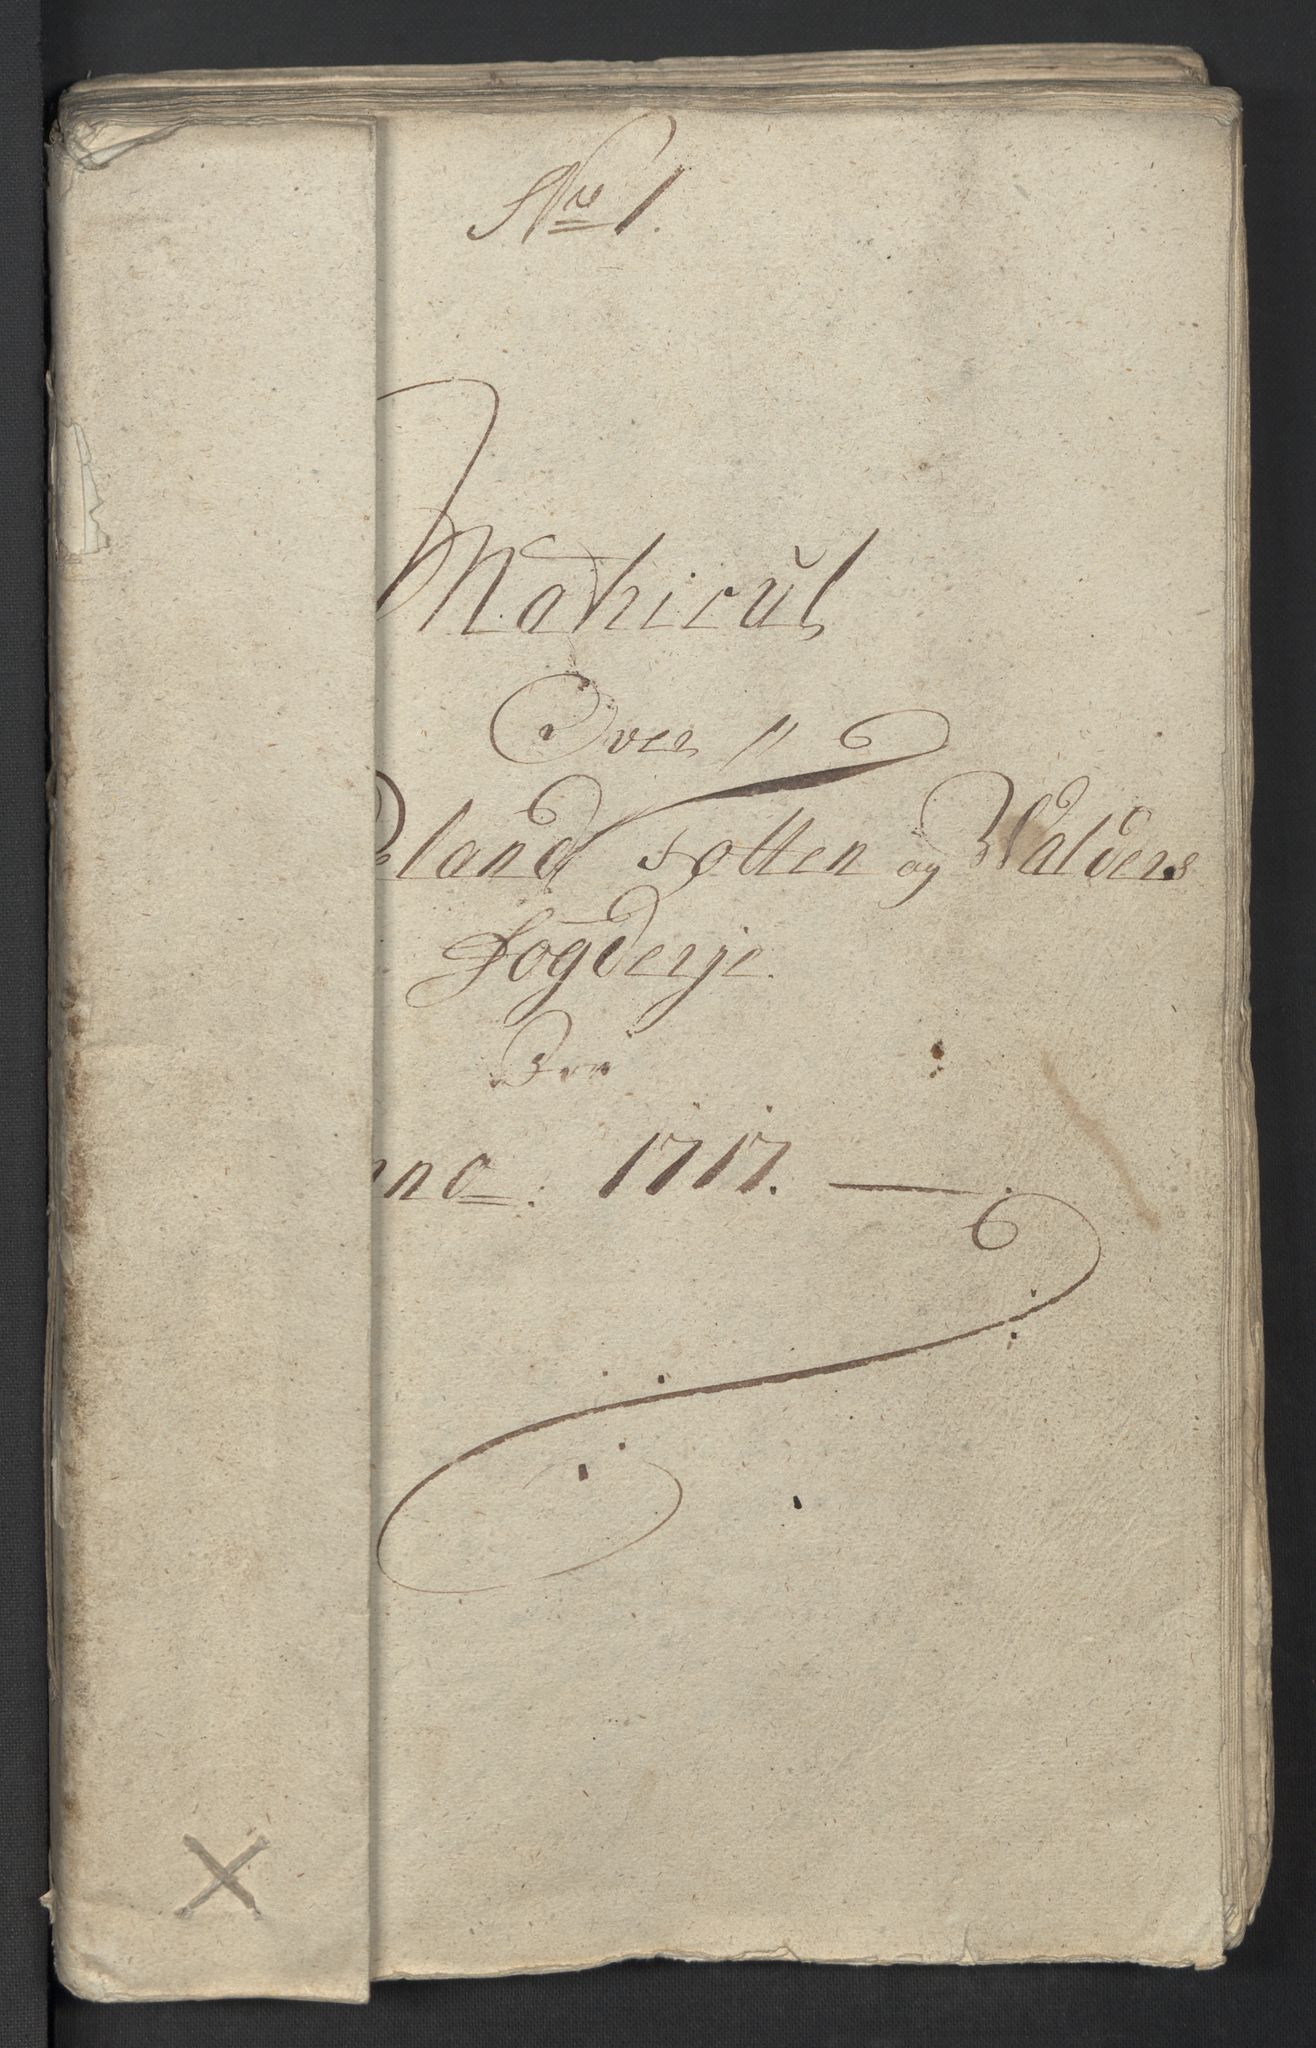 No 1.
Matricul
Over
land Totten og Walders
Fogderje.
Pro
nno: 1717.